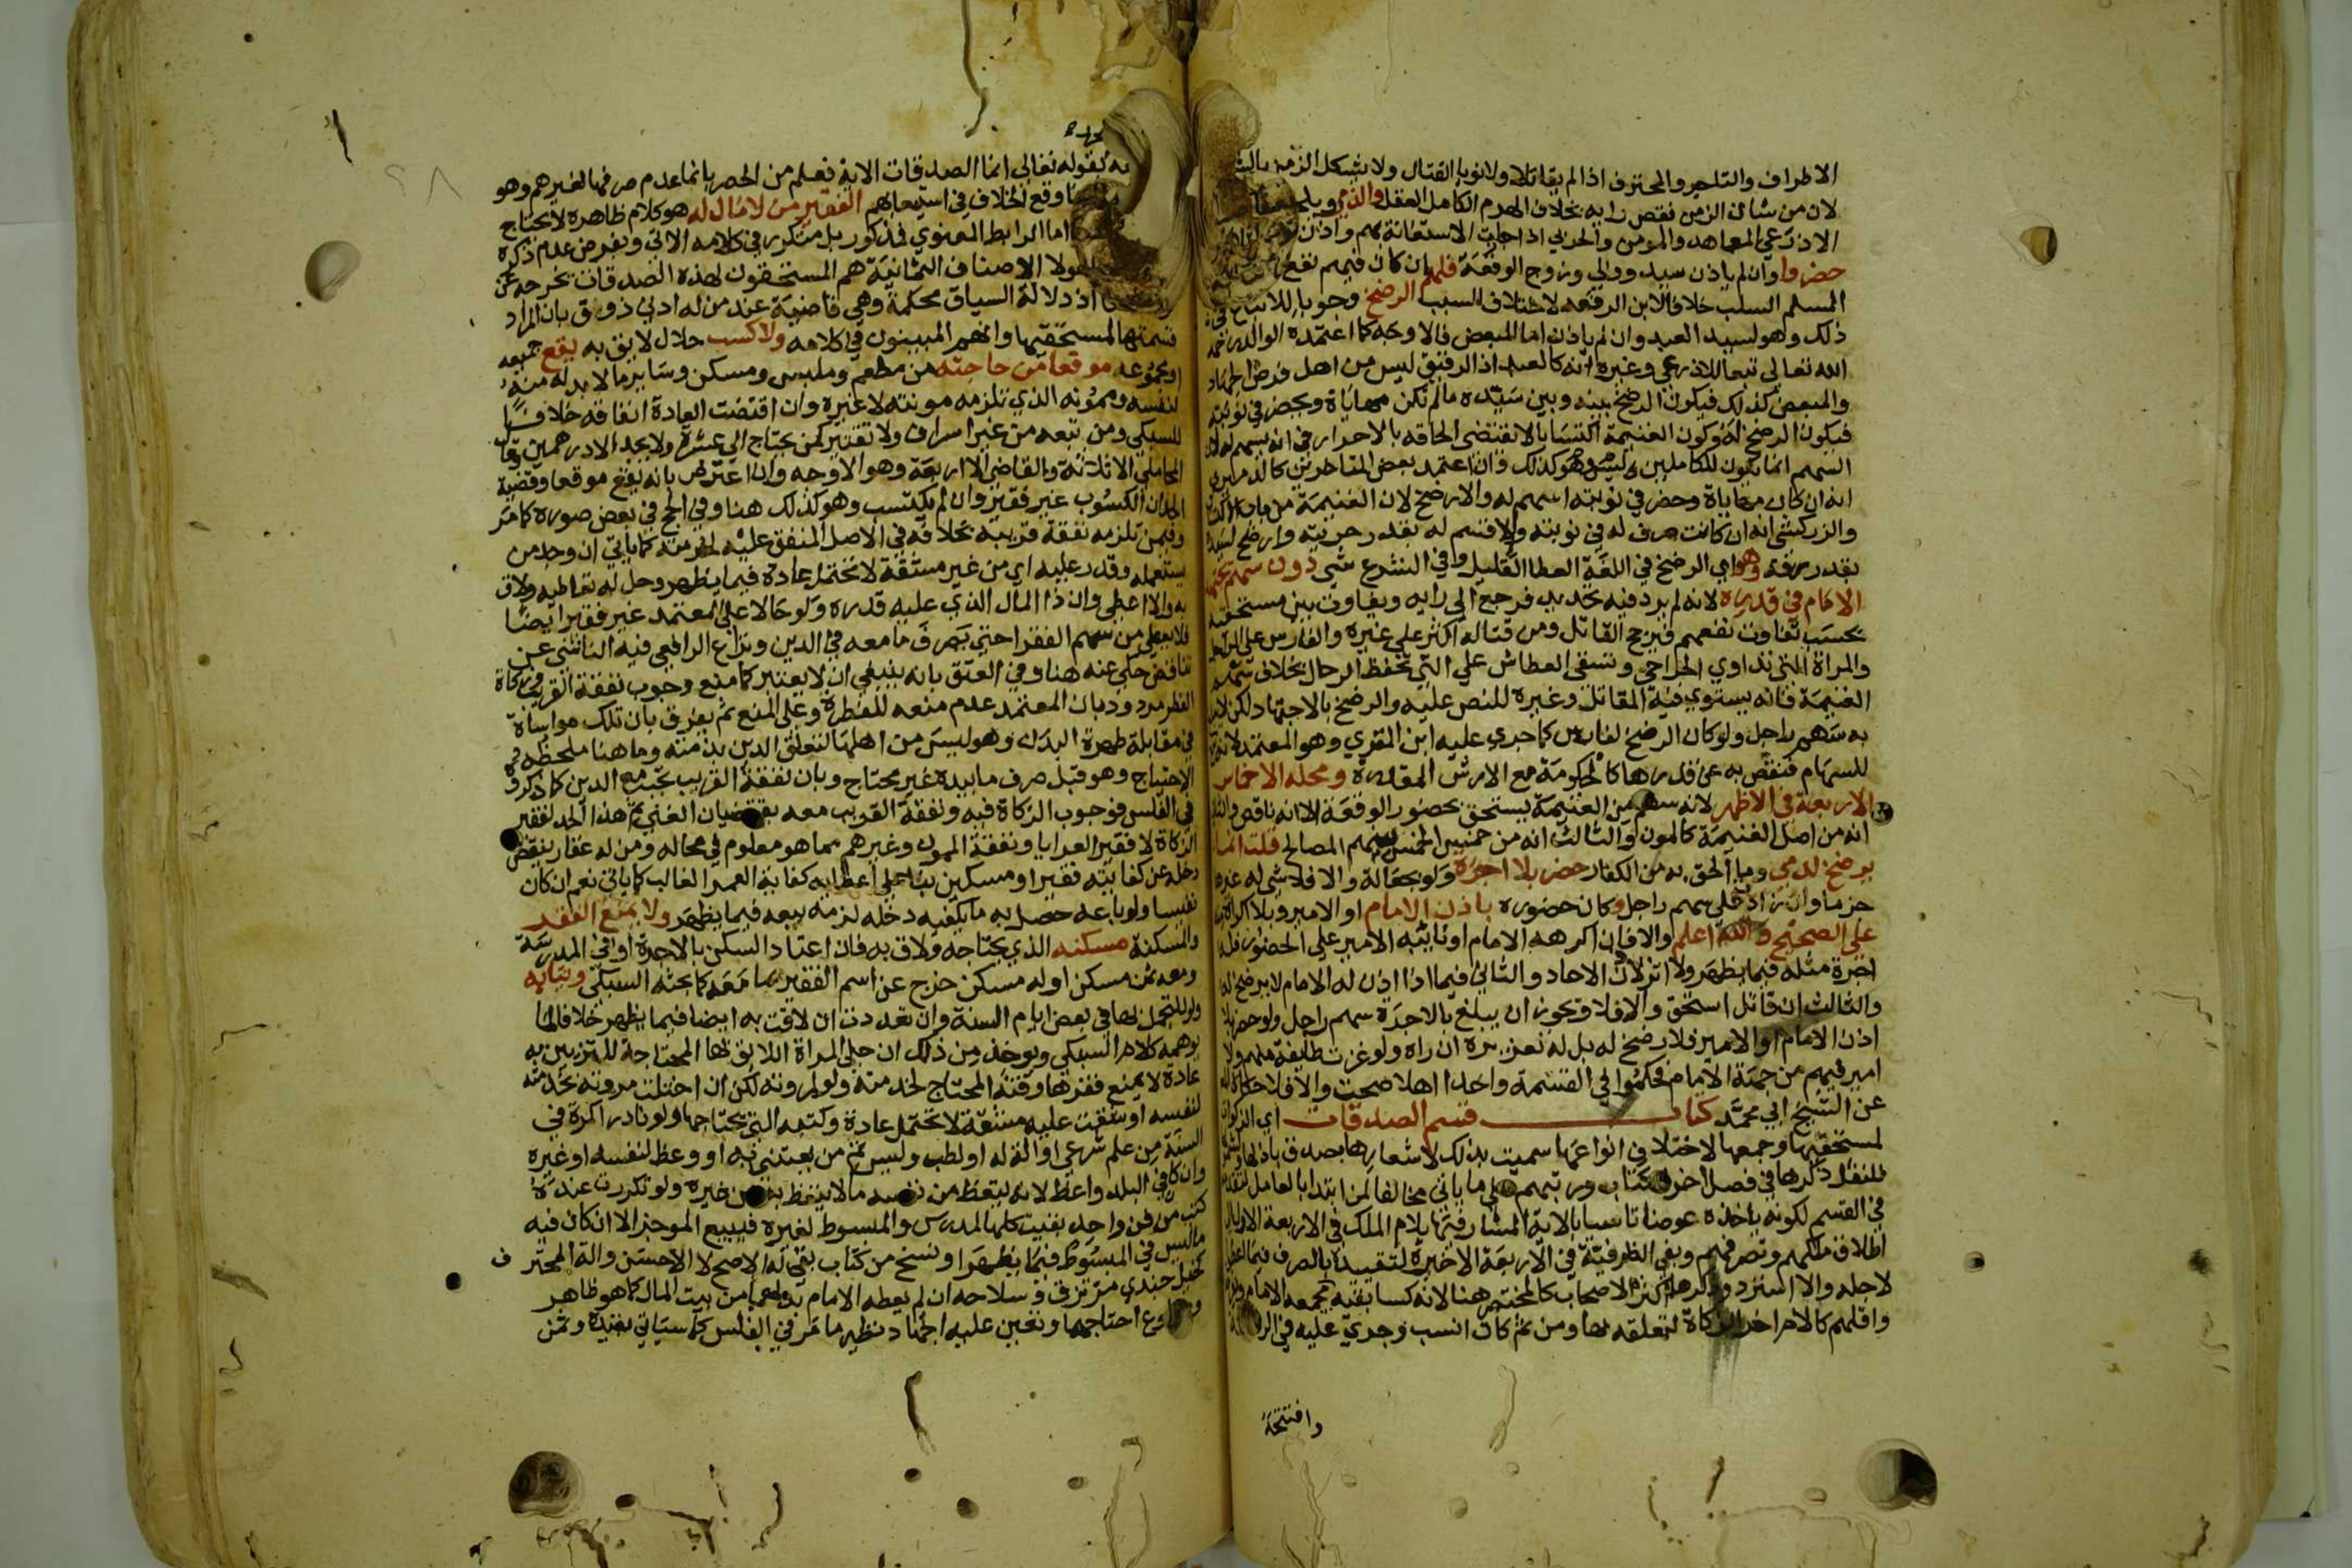 الاطراف والتاجر والمحترف اذا لم يقاتلا ولا نويا القتال ولا يشكل الزمن بالشيخ
لان من شان الزمن نقص رايه بخلاف الهرم الكامل العقل والذمي ويلحق
الاذرعي المعاهد والمومن والحربي اذا جازت الاستعانة بهم واذن
حضروا وان لم ياذن سيد وولي وزوج الوقعة فلهم ان كان فيهم نفع
المسلم السلب خلافا لابن الرفعه لاختلاف السبب الرضخ وجوبا للاتباع في
ذلك وهو لسيد العبد وان لم ياذن اما المبعض فالاوجه كما اعتمده الوالد رحمه
الله تعالى تبعا للاذرعي وغيره انه كالعبد اذ الرقيق ليس من اهل فرض الجهاد
والمبعض كذلك فيكون الرضخ بينه وبين سيده ما لم تكن مهاياة وحضر في نوبته
فيكون الرضخ له وكون الغنيمة اكتسابا لا تقتضي الحاقه بالاحرار في انه يسهم له لان
السهم انما يكون للكاملين وليس هو كذلك وان اعتمد بعض المتاخرين كالدميري
انه ان كان مهاياة وحضر في نوبته اسهم له والا رضخ لان الغنيمة من باب الاكتساب
والزركشي انه ان كانت صرف له في نوبته والا قسم له بقدر حريته وارضخ لسيده
بقدر رقه وهو اي الرضخ في اللغة العطا القليل وفي الشرع شي دون سهم يجتهد
الامام في قدره لانه لم يرد فيه تحديد فرجع الى رايه ويفاوت بين مستحقيه
بحسب تفاوت نفعهم فيرجح القاتل ومن قتاله اكثر على غيره والفارس على الراجل
والمراة التي تداوي الجراحي وتسقي العطاش على التي تحفظ الرحال بخلاف سهم
الغنيمة فانه يستوي فيه المقاتل وغيره للنص عليه والرضخ بالاجتهاد لكن لا يبلغ
به سهم راجل ولو كان الرضخ لفارس كما جرى عليه ابن المقري وهو المعتمد لانه تبع
للسهام فنقص به عن قدرها كالحكومة مع الارش المقدرة ومحله الاخماس
الاربعة في الاظهر لانه سهم من الغنيمة يستحق بحضور الوقعة الا انه ناقص والثاني
انه من اصل الغنيمة كالمون والثالث انه من خمس الخمس سهم المصالح قلت انما
يرضخ لذمي وما الحق به من الكفار حضر بلا اجرة ولو بجعالة والا فلا شي له غيره
جزما وان زاد على سهم راجل وكان حضوره باذن الامام او الامير وبلا اكراه
على الصحيح والله اعلم والا فان اكرهه الامام او نايبه الامير على الحضور فله
اجرة مثله فيما يظهر ولا اثر لاذن الاحاد والثاني فيما اذا اذن له الامام لا يرضخ له
والثالث ان قاتل استحق والا فلا وتجوز ان يبلغ بالاجرة سهم راجل ولو حضر بلا
اذن الامام او الامير فلا رضخ له بل له تعزيره ان راه ولو غزت طايفة منهم ولا
امير فيهم من جهة الامام فحكموا في القسمة واحدا اهلا صحت والا فلا حكاه
عن الشيخ ابي محمد كتاب قسم الصدقات اي الزكوات
لمستحقيها وجمعها لاختلاف انواعها سميت بذلك لاشعارها بصدق باذلها
للنفل ذكرها في فصل اخر الكتاب ورتبهم على ما ياتي مخالفا لمن ابتدا بالعامل لتقدمه
في القسم لكونه ياخذه عوضا تاسيا بالاية المشار فيها بلام الملك في الاربعة الاول
اطلاق ملكهم وتصرفهم وبفي الظرفية في الاربعة الاخيرة لتقييده بالصرف فيما اعطوا
لاجله والا استرد وذكرها اكثر الاصحاب كالمختصر هنا لانه كسابقيه يجمعه الامام
واقلهم كالام اخر الزكاة لتعلقه بها ومن ثم كان انسب وجرى عليه في الروضة
وافتتحه
به لقوله تعالى انما الصدقات الاية فعلم من الحصر بانما عدم صرفها لغيرهم وهو
وقع الخلاف في استيعابهم الفقير من لا مال له هو كلام ظاهره لا يحتاج
اما الرابط المعنوي فمذكور بل متكرر في كلامه الاتي وبفرض عدم ذكره
هولا الاصناف الثمانية هم المستحقون لهذه الصدقات تخرجه عن
اذ دلالة السياق محكمة وهي قاضية عند من له ادنى ذوق بان المراد
قسمتها لمستحقيها وانهم المبينون في كلامه ولا كسب حلال لايق به يقع جميعه
او مجموعه موقعا من حاجته من مطعم وملبس ومسكن وساير ما لا بد له منه
لنفسه وممونه الذي تلزمه مونته لا غيره وان اقتضت العادة انفاقه خلافا
للسبكي ومن تبعه من غير اسراف ولا تقتير كمن يحتاج الى عشرة ولا يجد الا درهمين وقال
المحاملي الا ثلاثة والقاضي الا اربعة وهو الاوجه وان اعترض بانه يقع موقعا وقضية
الحد ان الكسوب غير فقير وان لم يكتسب وهو كذلك هنا وفي الحج في بعض صوره كما مر
وفيمن تلزمه نفقة قريبه بخلافه في الاصل المنفق عليه لحرمته كما ياتي ان وجد من
يستعمله وقدر عليه اي من غير مشقة لا تحتمل عادة فيما يظهر وحل له تعاطيه ولاق
به والا اعطي وان ذا المال الذي عليه قدره ولو حالا على المعتمد غير فقير ايضا
فلا يعطى من سهم الفقرا حتى يصرف ما معه في الدين ونزاع الرافعي فيه الناشي عن
تناقض حكى عنه هنا وفي العتق بانه ينبغي ان لا يعتبر كما منع وجوب نفقة القريب وزكاة
الفطر مردود بان المعتمد عدم منعه للفطرة وعلى المنع ثم يفرق بان تلك مواساة
في مقابلة طهرة البدن وهو ليس من اهلها لتعلق الدين بذمته وما هنا ملحظه
الاحتياج وهو قبل صرف ما بيده غير محتاج وبان نفقة القريب تجب مع الدين كما ذكروه
في الفلس فوجوب الزكاة فيه ونفقة القريب معه يقتضيان الغنى ثم هذا الحد لفقير
الزكاة لا فقير العرايا ونفقة الممون وغيرهم مما هو معلوم في محاله ومن له عقار ينقص
دخله عن كفايته فقير او مسكين بنا على اعطايه كفاية العمر الغالب كما ياتي نعم ان كان
نفيسا ولو باعه حصل به ما يكفيه دخله لزمه بيعه فيما يظهر ولا يمنع الفقر
والمسكنة مسكنه الذي يحتاجه ولاق به فان اعتاد السكن بالاجرة او في المدرسة
ومعه ثمن مسكن او له مسكن خرج عن اسم الفقير بما معه كما بحثه السبكي وثيابه
ولو للتجمل بها في بعض ايام السنة وان تعددت ان لاقت به ايضا فيما يظهر خلافا لما
يوهمه كلام السبكي ويوخذ من ذلك ان حلي المراة اللايق بها المحتاجة للتزيين به
عادة لا يمنع فقرها وقنه المحتاج لخدمته ولو لمروته لكن ان اختلت مروته بخدمته
لنفسه او شقت عليه مشقة لا تحتمل عادة وكتبه التي يحتاجها ولو نادرا كمرة في
السنة من علم شرعي او الة له او لطب وليس ثم من يعتني به او وعظ لنفسه او غيره
وان كان في البلد واعظ لانه يتعظ من نفسه ما لا يتعظ به من غيره ولو تكررت عنده
كتب من فن واحد بقيت كلها لمدرس والمبسوط لغيره فيبيع الموجز الا ان كان فيه
ما ليس في المبسوط فيما يظهر او نسخ من كتاب بقي له الاصح لا الاحسن والة المحترف
كخيل جندي مرتزق وسلاحه ان لم يعطه الامام بدلهما من بيت المال كما هو ظاهر
ومتطوع احتاجهما وتعين عليه الجهاد نظير ما مر في الفلس كما سياتي بقيده وثمن